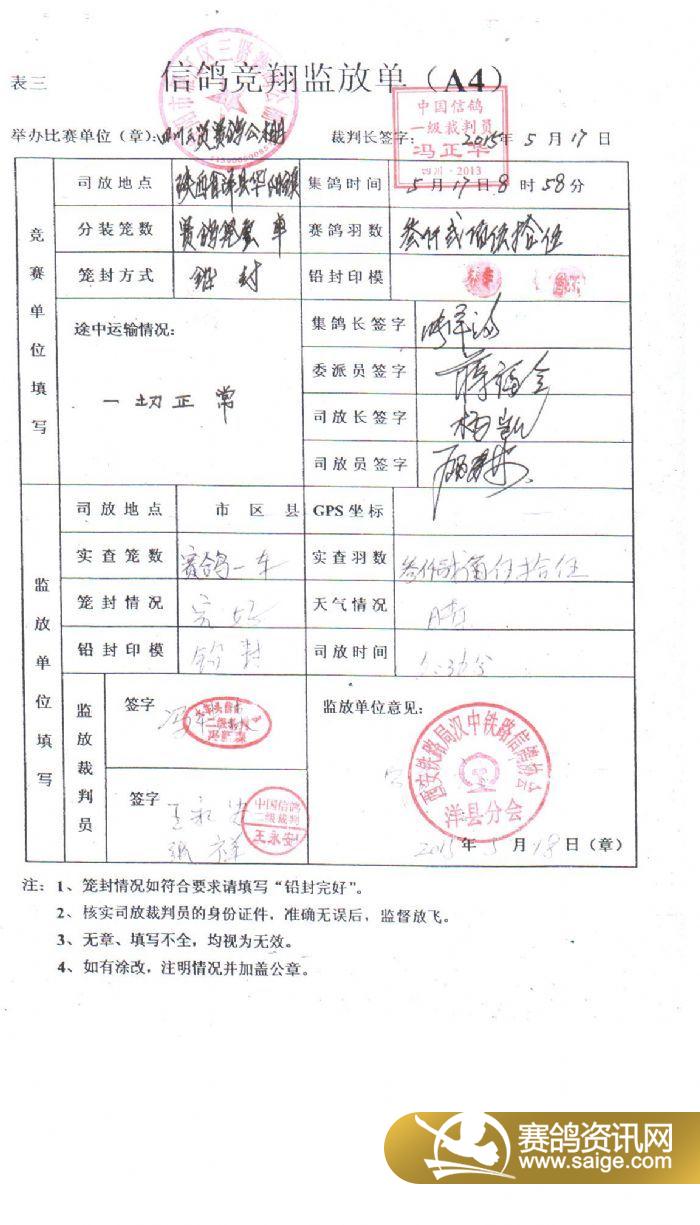 信鸽竞翔监放单（A4）
表三
举办比赛单位（章）：四川三贤赛鸽公棚 裁判长签字： 2015年5月17日
中国信鸽
一级裁判员
冯正华
四川·2013
竞赛单位填写
司放地点 陕西省洋县华阳镇 集鸽时间 5月17日8时58分
分装笼数 赛鸽笼壹车 赛鸽羽数 叁仟贰佰伍拾伍
笼封方式 铅封 铅封印模
途中运输情况： 集鸽长签字
一切正常 委派员签字 蒋福全
司放长签字 杨凯
司放员签字
监放单位填写
司放地点 市区县 GPS坐标
实查笼数 赛鸽一车 实查羽数 叁仟贰佰伍拾伍
笼封情况 完好 天气情况 晴
铅封印模 铅封 司放时间
监放裁判员
签字 监放单位意见：
二级裁判
西安铁路局汉中铁路信鸽协会
洋县分会
签字 王永安
中国信鸽
二级裁判
王永安
2015年5月18日（章）
注：1、笼封情况如符合要求请填写“铅封完好”。
2、核实司放裁判员的身份证件，准确无误后，监督放飞。
3、无章、填写不全，均视为无效。
4、如有涂改，注明情况并加盖公章。
赛鸽资讯网
www.saige.com